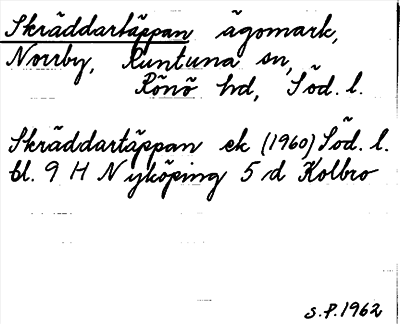 Skräddartäppan ägomark,
Norrby, Runtuna sn,
Rönö hd, Söd. l.
Skräddartäppan ek (1960) Söd. l.
bl. 9 H Nyköping 5 d Kolbro
S.P. 1962